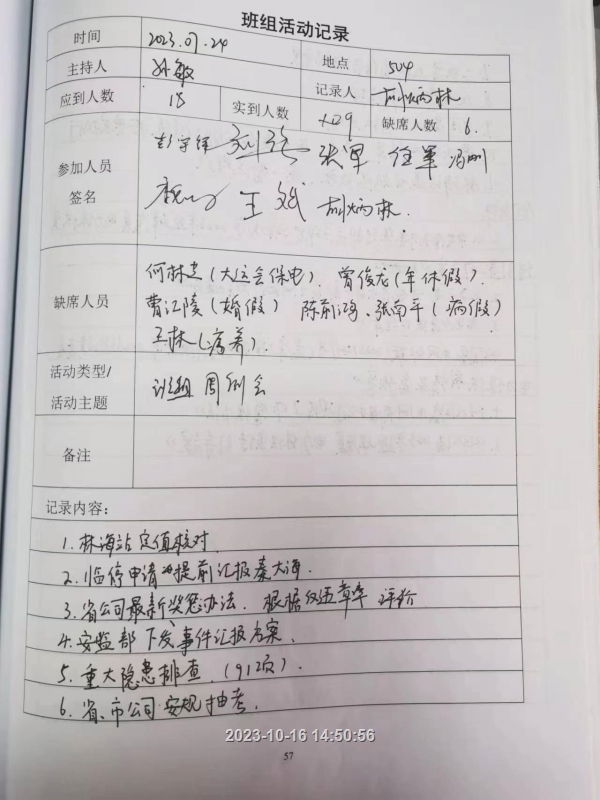 班组活动记录
时间 2023.07.24 地点 504
主持人 孙敏 记录人 胡炳林
应到人数 18 实到人数 缺席人数 6.
参加人员
签名
彭宇锋 张军 任军 冯刚
王斌 胡炳林.
缺席人员
何林芝(大运会保电). 曾俊龙(年休假).
曹江陵(婚假) 陈前鸿、张南平(病假)
王林(疗养).
活动类型/
活动主题
班组周例会
备注
记录内容:
1. 林海站定值核对.
2. 临停申请 提前汇报秦大海.
3. 省公司最新奖惩办法. 根据仅违章率评价
4. 安监部下发事件汇报方案.
5. 重大隐患排查. (912项).
6. 省、市公司安规抽考.
2023-10-16 14:50:56
57